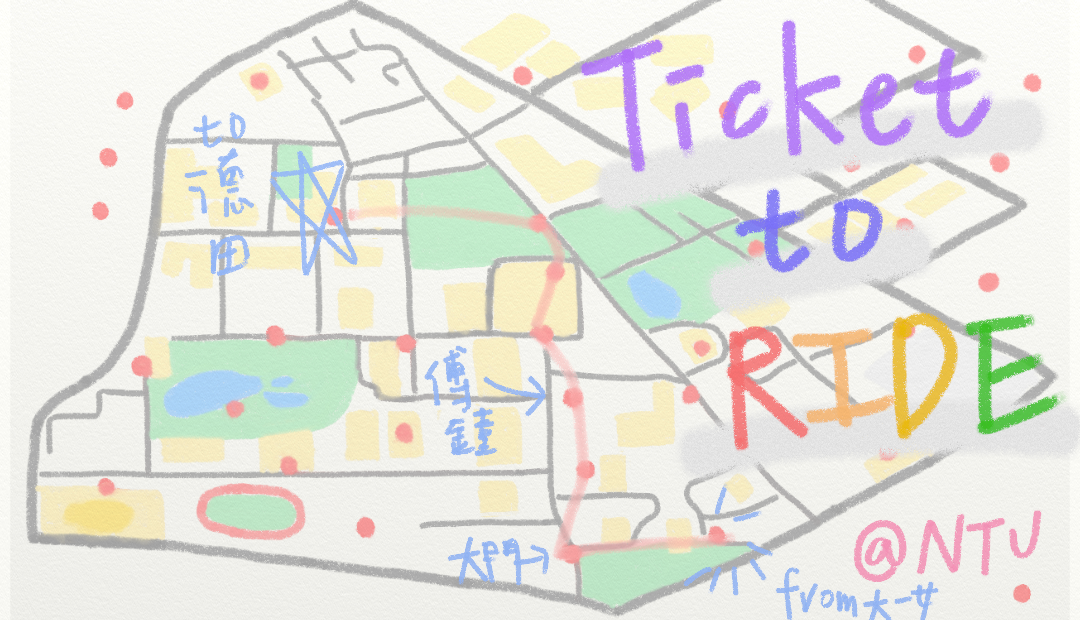 Ticket
to
RIDE
@NTU
to
德田
傅鐘
大門
from大一女